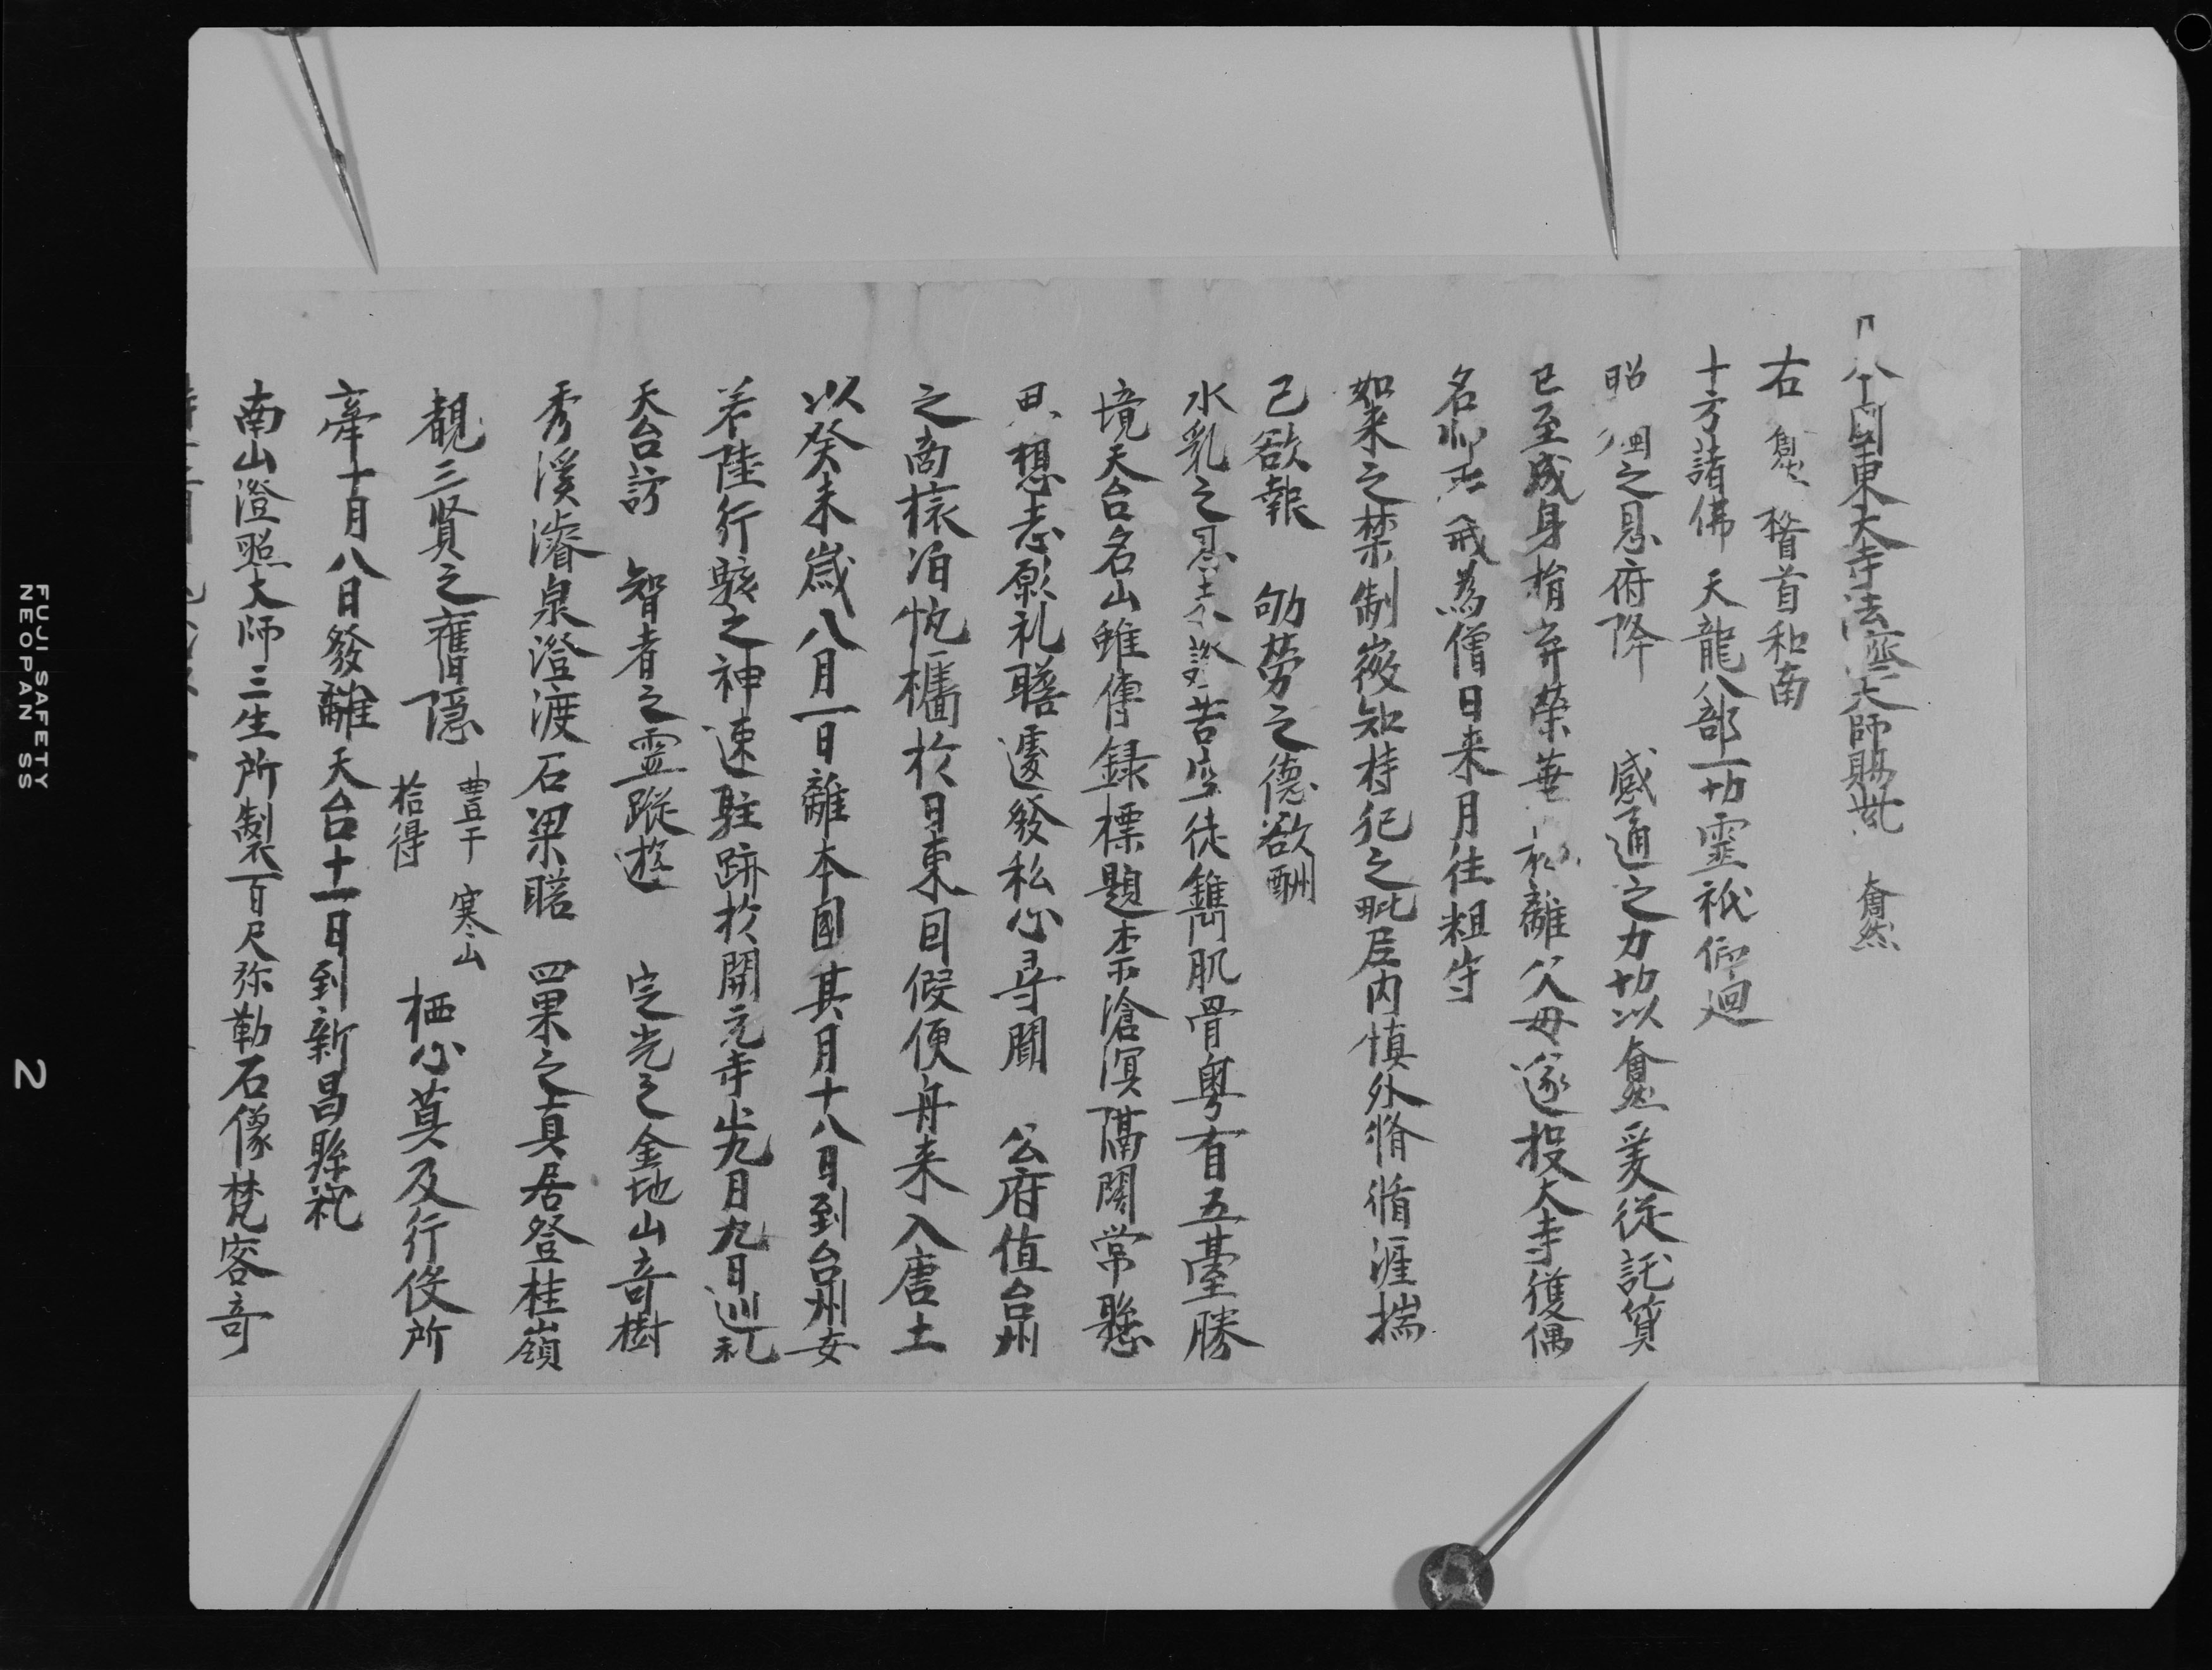 日本國東大寺法濟大師賜紫 奝然
右奝然稽首和南
十方諸佛天龍八部一切靈祇仰廻
昭 之恩府降 感通之力切以奝然爰從託質
已至成身捐弃榮華 離父母遂投大寺獲偶
名師 戒為僧日来月往粗守
如来之禁制嚴知持犯之毗尼内慎外脩循涯揣
己欲報 劬勞之德欲酬
水乳之恩 苦空徒鐫肌骨粤有五臺勝
境天台名山雖傳録標題柰滄溟隔闊常懸
思想志願礼瞻遽發私心尋聞 公府值台州
之商 泊 檣於日東因假便舟来入唐土
以癸未歲八月一日離本國其月十八日到台州安
若陸行駭之神速駐跡於開元寺 九月九日巡礼
天台訪 智者之靈蹤遊 定光之金地山奇樹
秀溪濬泉澄渡石梁瞻 四果之真居登桂嶺
覩三賢之舊隱 豊干 寒山 拾得 栖心莫及行役所
牽十月八日發離天台十一日到新昌縣礼
南山澄照大師三生所製百尺弥勒石像梵容奇
FUJI SAFETY
NEOPAN SS
2